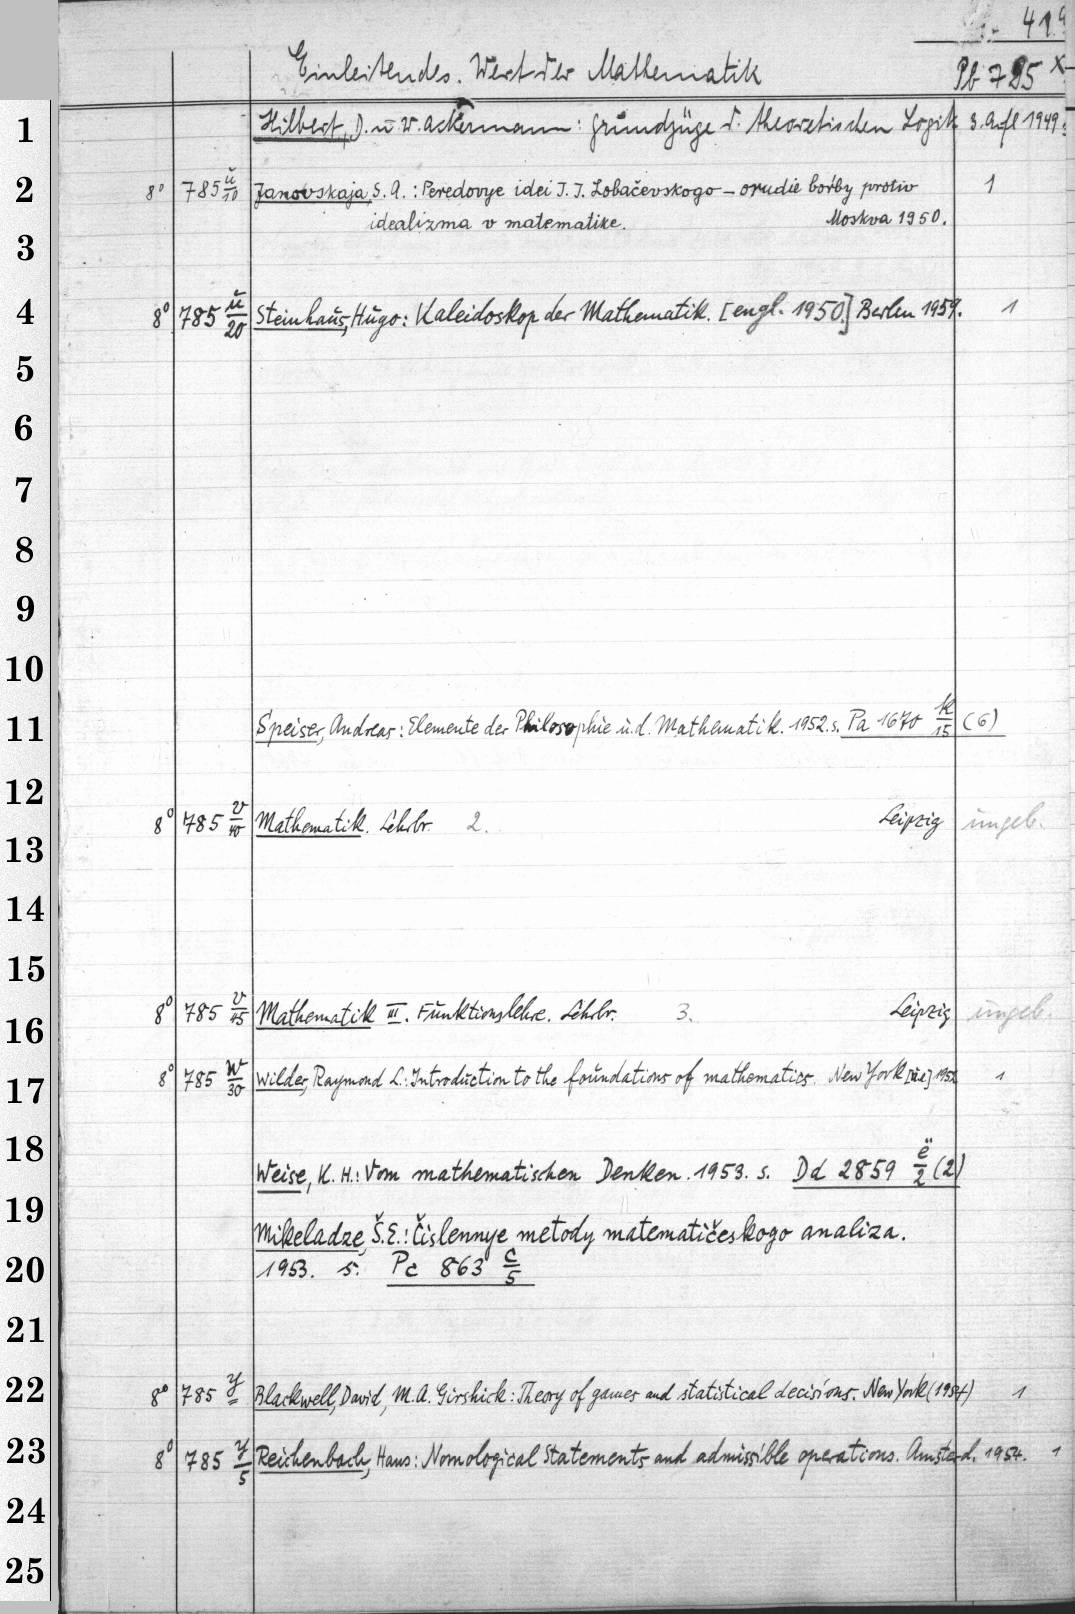 41
Einleitendes. Wert der Mathematik Pb 785 x
1 Hilbert, D. u W. Ackermann: Grundzüge d. theoretischen Logik 3. Aufl 1949
2 8° 785 ü/10 Janovskaja, S. A.: Peredovye idei I. I. Lobačevskogo – orudie boŕby protiv 1
idealizma v matematike. Moskva 1950.
3
4 8° 785 ü/20 Steinhaus, Hugo: Kaleidoskop der Mathematik. [engl. 1950.] Berlin 1959. 1
5
6
7
8
9
10
11 Speiser, Andreas: Elemente der Philosophie u. d. Mathematik. 1952. s. Pa 1670 k/15 (6)
12
8° 785 v/40 Mathematik. Lehrbr. 2. Leipzig ungeb.
13
14
15
8° 785 v/45 Mathematik III. Funktionslehre. Lehrbr. 3. Leipzig ungeb.
16
17 8° 785 w/30 Wilder, Raymond L.: Introduction to the foundations of mathematics. New York 1952 1
18
Weise, K. H.: Vom mathematischen Denken. 1953. s. Dd 2859 ë/2 (2)
19
Mikeladze, Š. E.: Čislennye metody matematičeskogo analiza.
20 1953. s. Pc 863 c/5
21
22 8° 785 y Blackwell, David, M. A. Girshick: Theory of games and statistical decisions. New York (1954) 1
23 8° 785 y/5 Reichenbach, Hans: Nomological Statements and admissible operations. Amsterd. 1954. 1
24
25